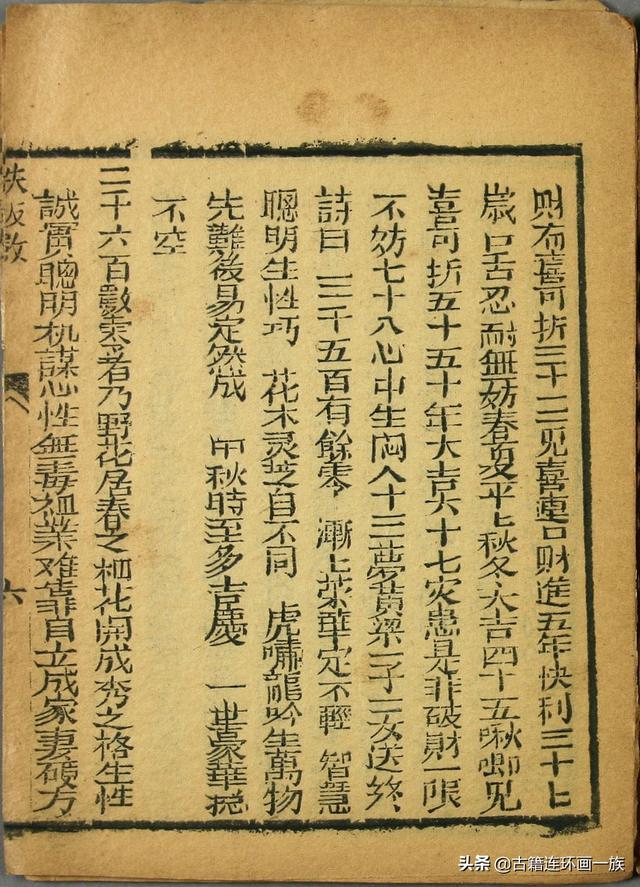 則有喜可折三十二見喜連口財進五年快利三十七
歲口舌忍耐無妨春夏平上秋冬大吉四十五啾唧見
喜可折五十五十年大吉六十七灾患是非破財一限
不妨七十八心中生悶八十三夢黃粱一子二女送終
詩曰 三千五百有餘零 漸上荣華定不輕 智慧
聰明生性巧 花木灵芝自不同 虎嘯龍吟生萬物
先難後易定然成 中秋時至多吉慶 一世豪華總
不空
二千六百數寨者乃野花居春之柳花開成秀之格生性
誠實聰明机謀心性無毒祖業难靠自立成家妻碩方
鉄板数 六
头条 @古籍连环画一族